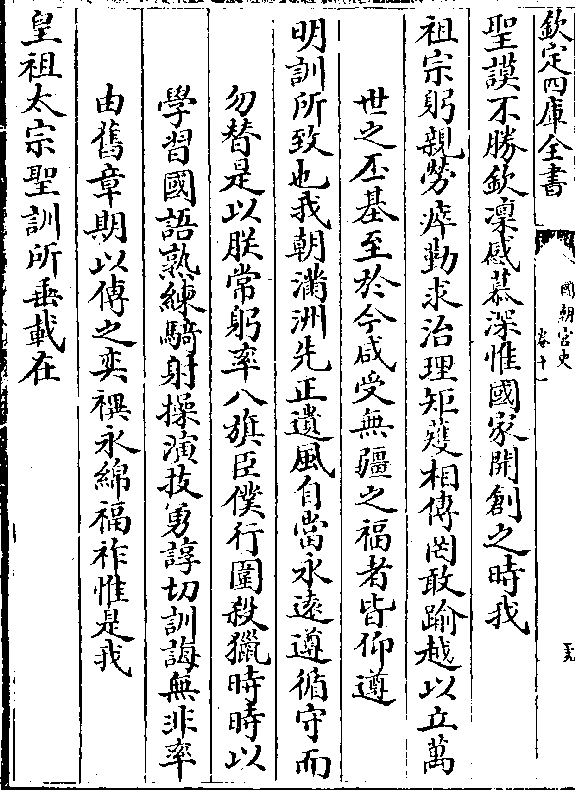 欽定四庫全書
國朝宮史
卷十
聖謨不勝欽凜感慕深惟國家開創之時我
祖宗躬親勞瘁勤求治理矩矱相傳罔敢踰越以立萬
世之丕基至於今咸受無疆之福者皆仰遵
明訓所致也我朝滿洲先正遺風自當永遠遵循守而
勿替是以朕常躬率八旗臣僕行圍殺獵時時以
學習國語熟練騎射操演技勇諄切訓誨無非率
由舊章期以傳之奕禩永綿福祚惟是我
皇祖太宗聖訓所垂載在